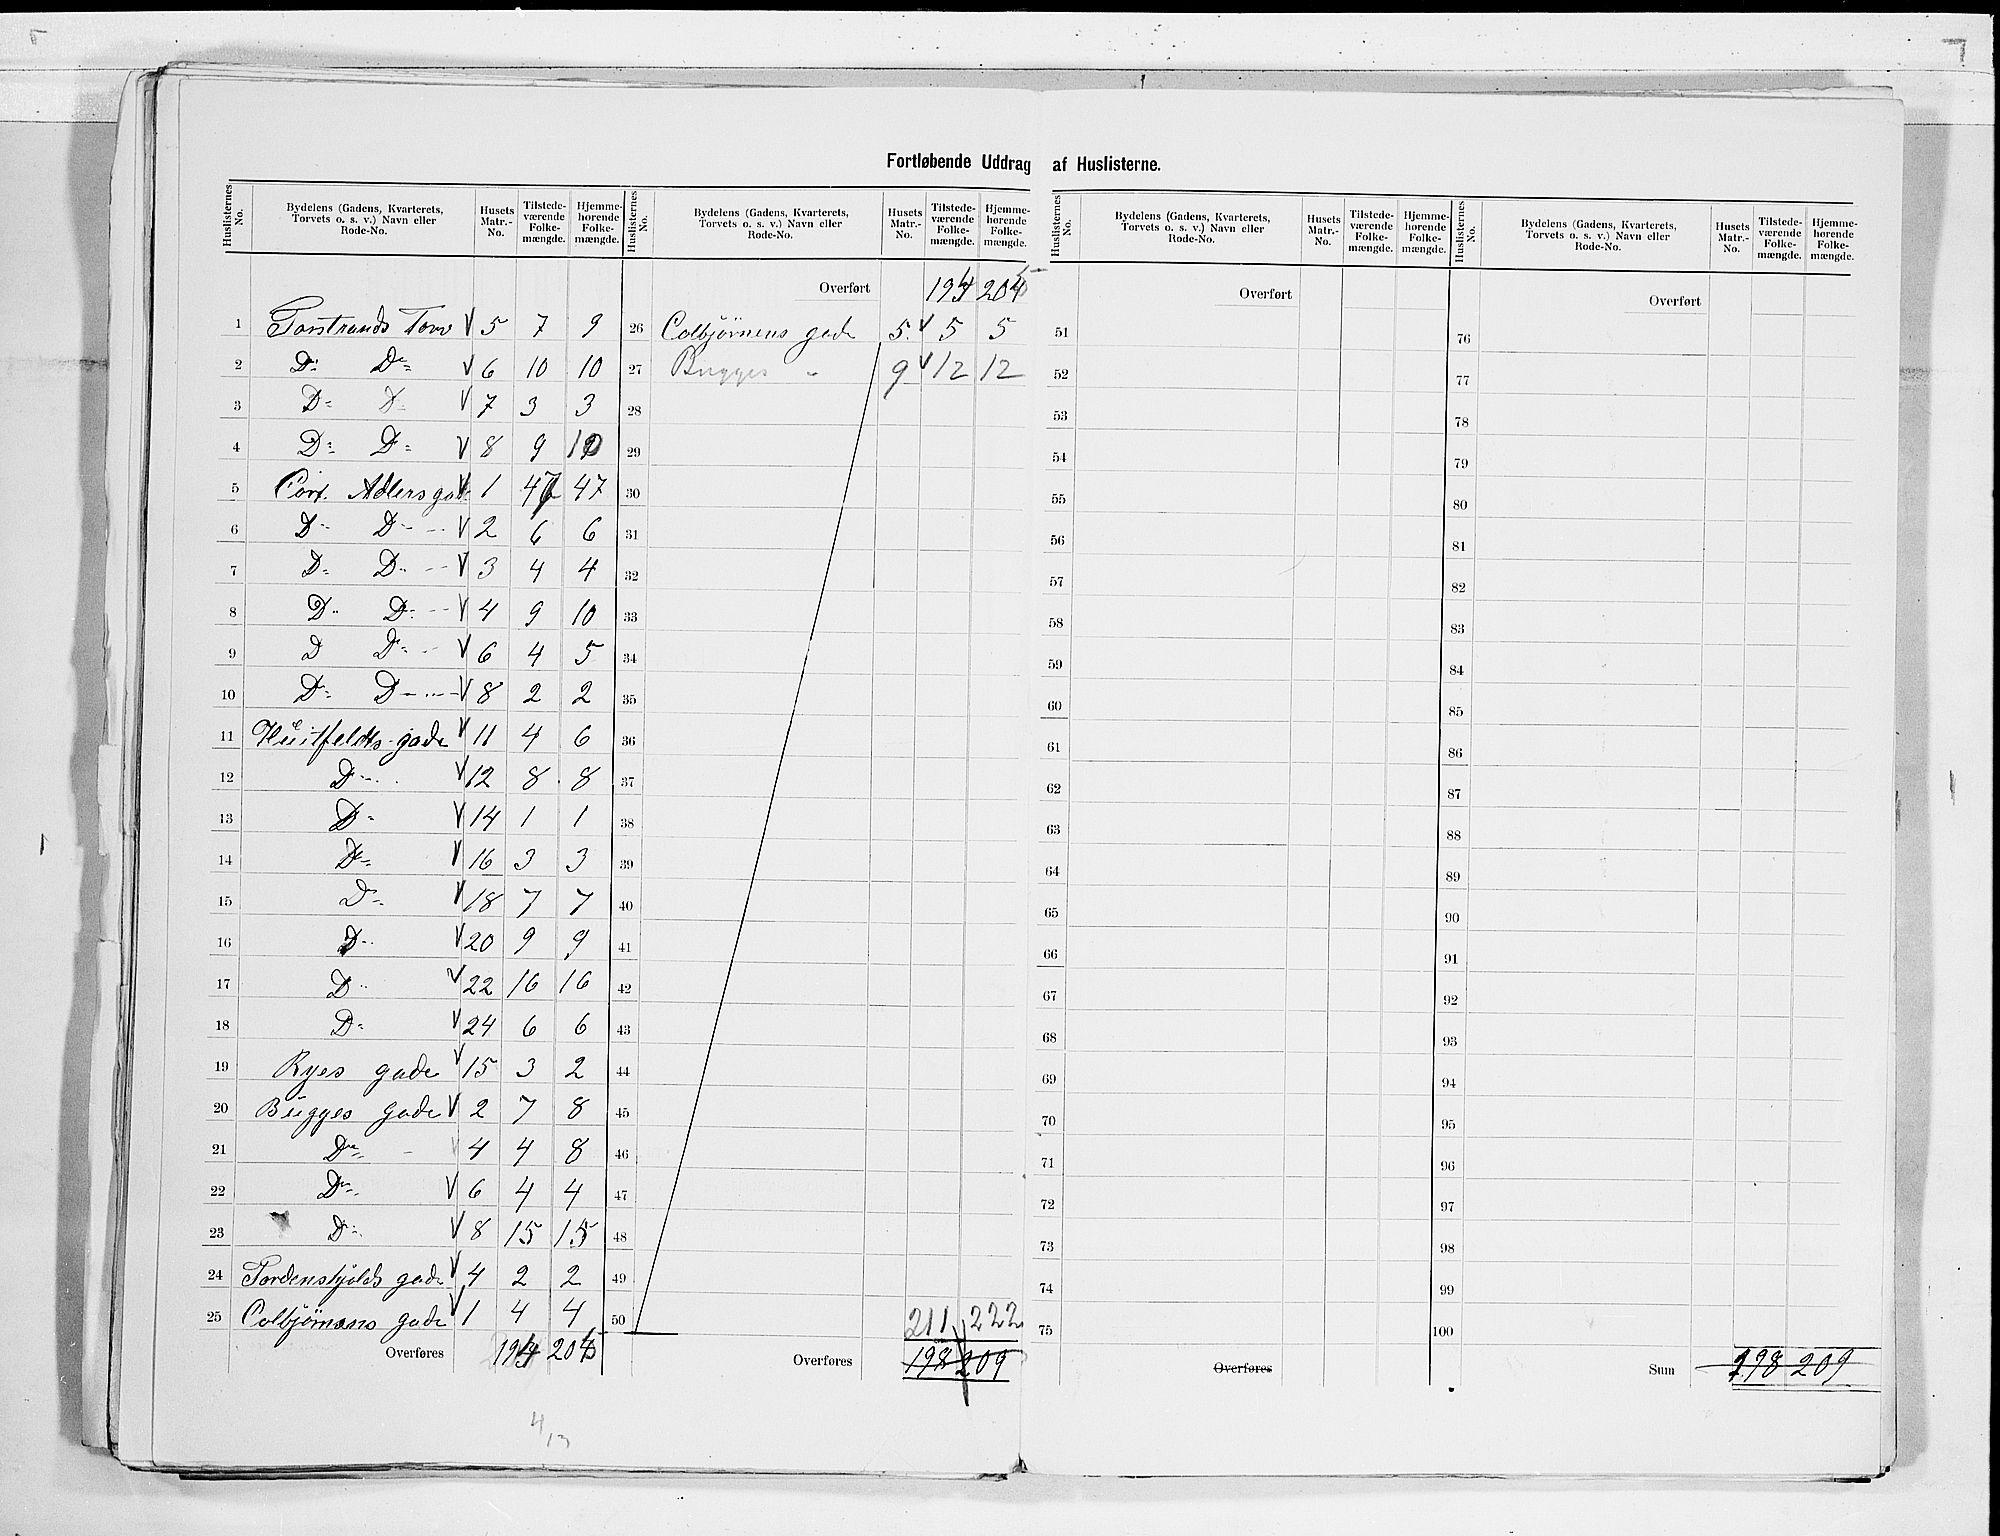 Fortløbende Uddrag af Huslisterne.
Huslisternes No. | Bydelens (Gadens, Kvarterets, Torvets o. s. v.) Navn eller Rode-No. | Husets Matr.-No. | Tilstedeværende Folkemængde. | Hjemmehørende Folkemængde.
1 Torstrands Torv V 5 7 9
2 Do Do V 6 10 10
3 Do Do V 7 3 3
4 Do Do V 8 9 10
5 Cort Adlers gade V 1 47 47
6 Do Do V 2 6 6
7 Do Do V 3 4 4
8 Do Do V 4 9 10
9 D Do V 6 4 5
10 Do Do V 8 2 2
11 Hueitfeldts gade V 11 4 6
12 Do V 12 8 8
13 Do V 14 1 1
14 Do V 16 3 3
15 Do V 18 7 7
16 Do V 20 9 9
17 Do V 22 16 16
18 Do V 24 6 6
19 Ryes gade V 15 3 2
20 Bugges gade V 2 7 8
21 Do V 4 4 8
22 Do V 6 4 4
23 Do V 8 15 15
24 Tordenskjolds gade V 4 2 2
25 Colbjörnsens gade V 1 4 4
Overføres 194 205
4/13
Huslisternes No. | Bydelens (Gadens, Kvarterets, Torvets o. s. v.) Navn eller Rode-No. | Husets Matr.-No. | Tilstedeværende Folkemængde. | Hjemmehørende Folkemængde.
Overført 194 205
26 Colbjörnens gade 5. V 5 5
27 Bugges " 9 V 12 12
28
29
30
31
32
33
34
35
36
37
38
39
40
41
42
43
44
45
46
47
48
49
50
211 222
Overføres 198 209
Huslisternes No. | Bydelens (Gadens, Kvarterets, Torvets o. s. v.) Navn eller Rode-No. | Husets Matr.-No. | Tilstedeværende Folkemængde. | Hjemmehørende Folkemængde.
Overført
51
52
53
54
55
56
57
58
59
60
61
62
63
64
65
66
67
68
69
70
71
72
73
74
75
Overføres
Huslisternes No. | Bydelens (Gadens, Kvarterets, Torvets o. s. v.) Navn eller Rode-No. | Husets Matr.-No. | Tilstedeværende Folkemængde. | Hjemmehørende Folkemængde.
Overført
76
77
78
79
80
81
82
83
84
85
86
87
88
89
90
91
92
93
94
95
96
97
98
99
100
Sum 198 209